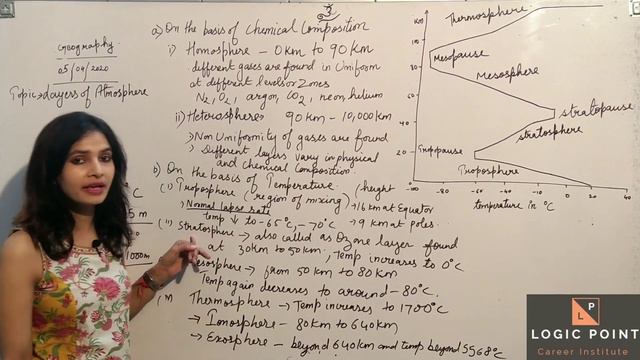 3
Geography
05/04/2020
Topic → Layers of Atmosphere
a) On the basis of Chemical Composition
i) Homosphere - 0 km to 90 km
different gases are found in Uniform
at different levels or Zones
N2, O2, argon, CO2, neon, helium
ii) Heterosphere: 90 km - 10,000 km
→ Non Uniformity of gases are found
→ Different layers vary in physical
and chemical Composition.
b) On the basis of Temperature.
(i) Troposphere (region of mixing) (height
→ Normal lapse rate → 16 km at Equator
temp ↓ to -65°C, -70°C → 9 km at poles.
(ii) Stratosphere → also called as Ozone layer found
at 30 km to 50 km, Temp increases to 0°C
esosphere → from 50 km to 80 km
Temp again decreases to around -80°C.
Thermosphere → Temp increases to 1700°C
→ Ionosphere - 80 km to 640 km
→ Exosphere - beyond 640 km and temp beyond 5568°C
°C
5 m
1000m
Thermosphere
Mesopause
Mesosphere
stratopause
stratosphere
Tropopause
Troposphere
km
80
60
40
20
-80 -60 -40 -20 0 20 40
temperature in °C
L P
LOGIC POINT
Career Institute